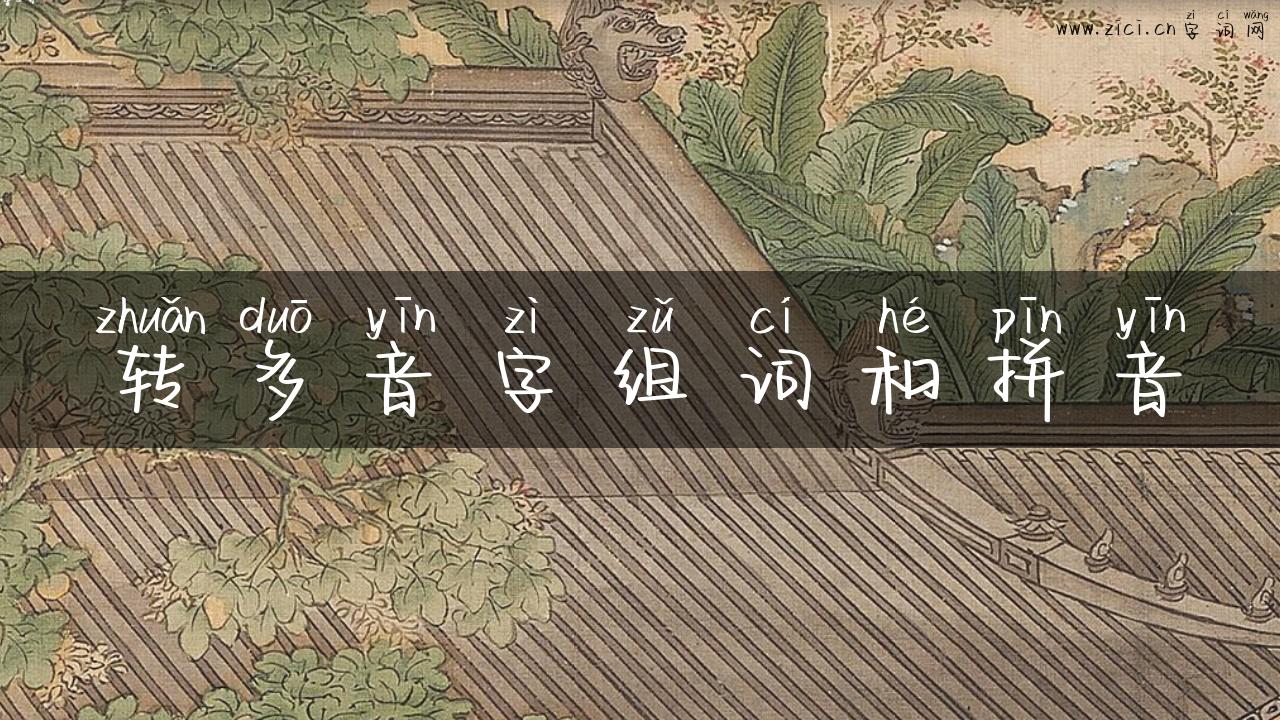 zì cí wǎng
www.zici.cn 字词网
zhuǎn duō yīn zì zǔ cí hé pīn yīn
转多音字组词和拼音